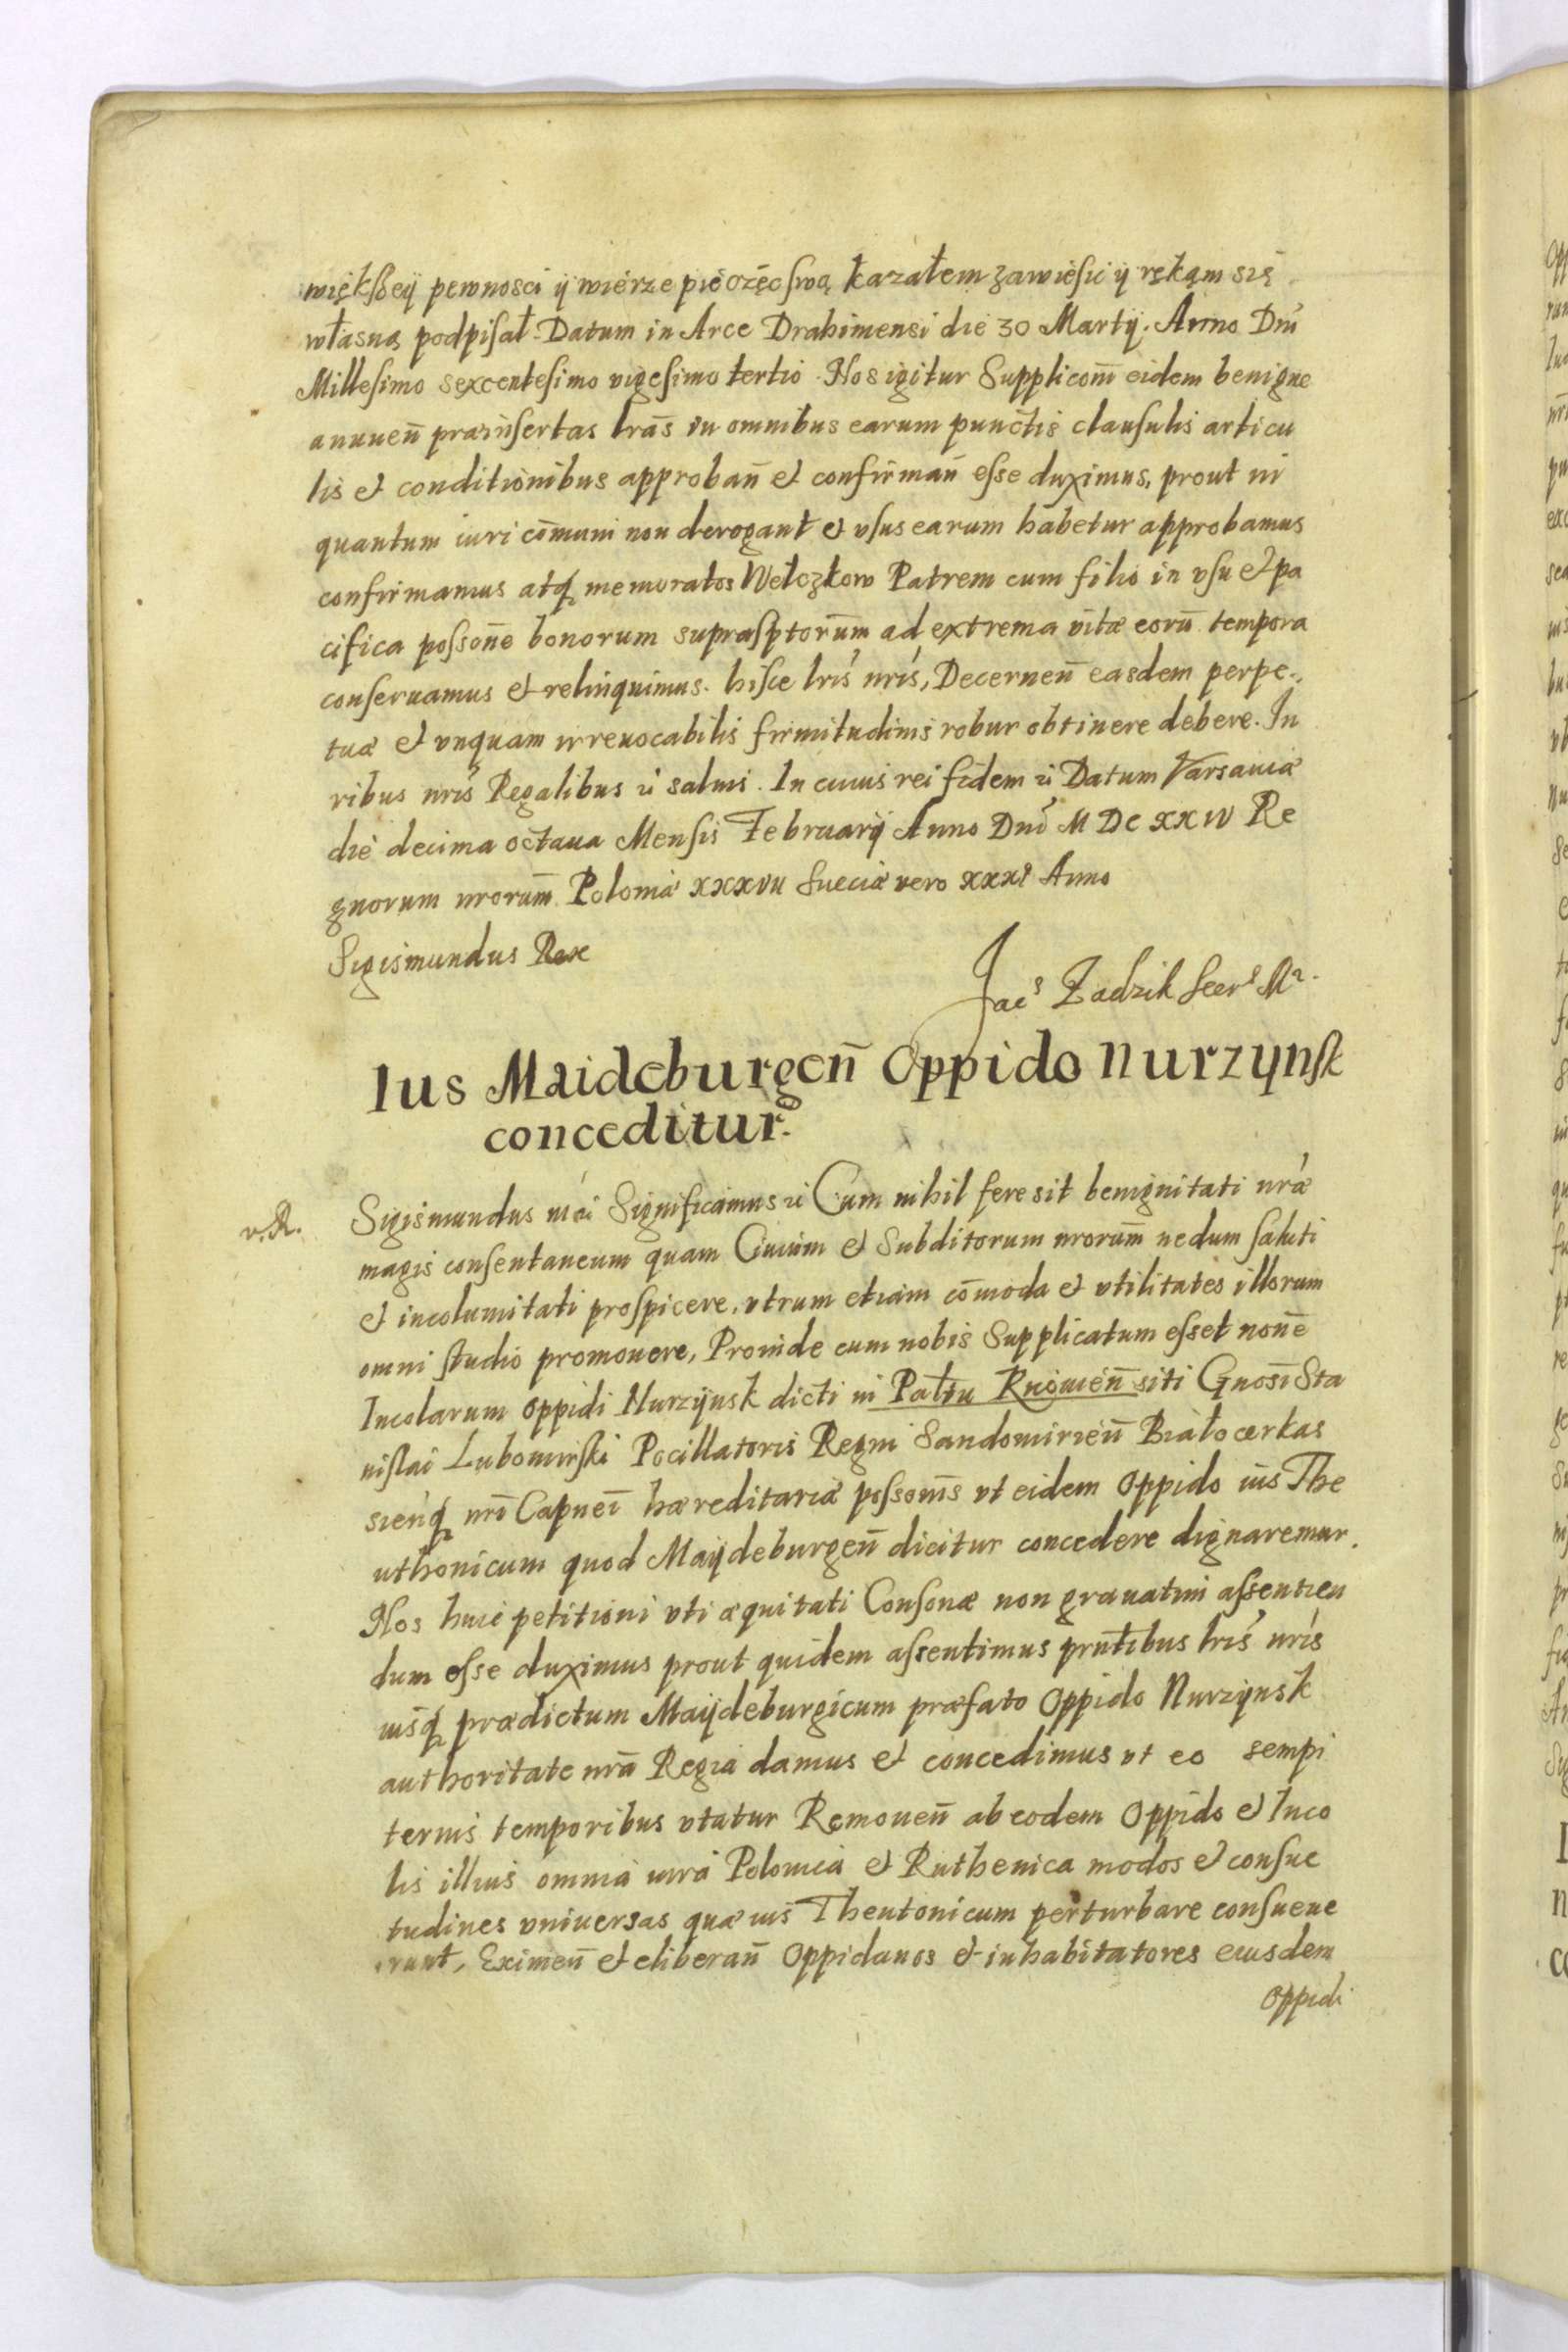 większeÿ pewnosci ÿ wierze pieczęc swą kazałem zawiesic ÿ rękąm się
własną podpisał. Datum in Arce Drahimensi die 30 Martÿ. Anno Dni
Millesimo sexcentesimo vigesimo tertio. Nos igitur Suppliconi eidem benigne
annuen̄ præinsertas lrās in omnibus earum punctis clausulis articu
lis et conditionibus approban̄ et confirman̄ esse duximus, prout in
quantum iuri cōmuni non derogant et vsus earum habetur approbamus
confirmamus atq̨ memoratos Wełczkow Patrem cum filio in vsu et pa
cifica possōne bonorum suprasptorum̄ ad extrema vitæ eorū tempora
conseruamus et relinquimus. hisce lris nris, Decernen̄ easdem perpe-
tuæ et vnquam irreuocabilis firmitudinis robur obtinere debere. Iu
ribus nris Regalibus etc saluis. In cuius rei fidem etc Datum Varsauiæ
die decima octaua Mensis Februarÿ Anno Dni M DC XXIV Re
gnorum nrorum̄ Poloniæ XXXVII Sueciæ vero XXXI Anno
Sigismundus Rex
Jacs Zadzik Secrs Mr.
Ius Maideburgen̄ Oppido Nurzynsk
conceditur.
v.R. Sigismundus etc Significamus etc Cum nihil fere sit benignitati nræ
magis consentaneum quam Ciuium et Subditorum nrorum̄ nedum saluti
et incolumitati prospicere, vtrum etiam cōmoda et vtilitates illorum
omni studio promouere, Proinde cum nobis Supplicatum esset nōne
Incolarum oppidi Nurzÿnsk dicti in Paltu Kiiouien̄ siti Gnosi Sta
nislai Lubomirski Pocillatoris Regni Sandomirien̄ Białocerkas
sienq̨ nri Capnei hæreditariæ possonis vt eidem Oppido ius The
uthonicum quod Maÿdeburgen̄ dicitur concedere dignaremur.
Nos huic petitioni vti æquitati Consonæ non grauatim assentien
dum esse duximus prout quidem assentimus prntibus lris nris
iusq̨ prædictum Maÿdeburgicum præfato Oppido Nurzÿnsk
authoritate nrā Regia damus et concedimus vt eo sempi
ternis temporibus vtatur Remouen̄ ab eodem Oppido et Inco
lis illius omnia iura Polonica et Ruthenica modos et consue
tudines vniuersas quæ ius Theutonicum perturbare consueue
runt, Eximen̄ et eliberan̄ Oppidanos et inhabitatores eiusdem
Oppidi